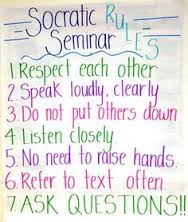 Socratic RULES
Seminar
1. Respect each other
2. Speak loudly, clearly
3. Do not put others down
4. Listen closely
5. No need to raise hands.
6. Refer to text often.
7. ASK QUESTIONS!!